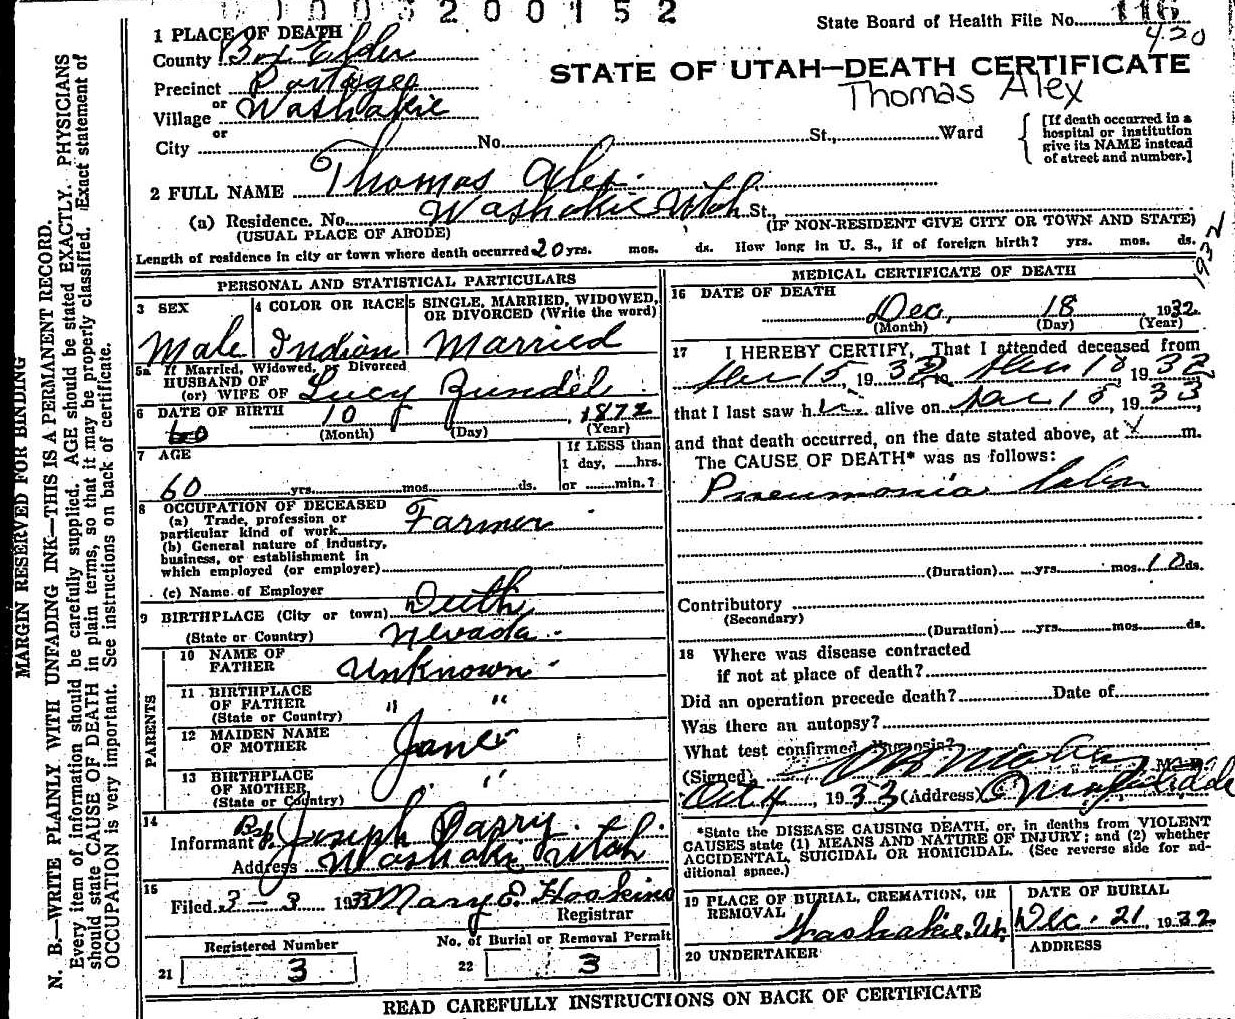 200152
State Board of Health File No. 116
420
1 PLACE OF DEATH
County Box Elder
STATE OF UTAH—DEATH CERTIFICATE
Precinct Portage
Thomas Alex
or
Village Washakie
or
City No. St., Ward
[If death occurred in a hospital or institution give its NAME instead of street and number.]
2 FULL NAME Thomas Alex
(a) Residence. No. Washakie Utah St.,
(USUAL PLACE OF ABODE)
(IF NON-RESIDENT GIVE CITY OR TOWN AND STATE)
Length of residence in city or town where death occurred 20 yrs. mos. ds. How long in U. S., if of foreign birth? yrs. mos. ds.
1932
PERSONAL AND STATISTICAL PARTICULARS
3 SEX
Male
4 COLOR OR RACE
Indian
5 SINGLE, MARRIED, WIDOWED, OR DIVORCED (Write the word)
Married
5a If Married, Widowed, or Divorced
HUSBAND OF
(or) WIFE OF Lucy Zundel
6 DATE OF BIRTH 10 1872
60
(Month) (Day) (Year)
7 AGE
60 yrs. mos. ds.
If LESS than
1 day, hrs.
or min.?
8 OCCUPATION OF DECEASED
(a) Trade, profession or
particular kind of work Farmer
(b) General nature of Industry,
business, or establishment in
which employed (or employer)
(c) Name of Employer
9 BIRTHPLACE (City or town) Deeth
(State or Country) Nevada
PARENTS
10 NAME OF FATHER Unknown
11 BIRTHPLACE OF FATHER " "
(State or Country)
12 MAIDEN NAME OF MOTHER Jane
13 BIRTHPLACE OF MOTHER "
(State or Country)
14
Informant Bp. Joseph Parry
Address Washakie Utah
15
Filed 3-3 193 Mary E. Hoskins
Registrar
Registered Number
21 3
No. of Burial or Removal Permit
22 3
MEDICAL CERTIFICATE OF DEATH
16 DATE OF DEATH
Dec. 18 1932
(Month) (Day) (Year)
17 I HEREBY CERTIFY, That I attended deceased from
15, 19 18 1932
that I last saw h alive on 15, 1933
and that death occurred, on the date stated above, at m.
The CAUSE OF DEATH* was as follows:
Pneumonia Lobar
(Duration) yrs. mos. 10 ds.
Contributory
(Secondary)
(Duration) yrs. mos. ds.
18 Where was disease contracted
if not at place of death?
Did an operation precede death? Date of
Was there an autopsy?
What test confirmed diagnosis?
(Signed) M. D.
Oct 4, 1933 (Address)
*State the DISEASE CAUSING DEATH, or, in deaths from VIOLENT
CAUSES state (1) MEANS AND NATURE OF INJURY; and (2) whether
ACCIDENTAL, SUICIDAL OR HOMICIDAL. (See reverse side for ad-
ditional space.)
19 PLACE OF BURIAL, CREMATION, OR
REMOVAL Washakie, Ut.
DATE OF BURIAL
Dec. 21 1932
20 UNDERTAKER
ADDRESS
READ CAREFULLY INSTRUCTIONS ON BACK OF CERTIFICATE
MARGIN RESERVED FOR BINDING
N. B.—WRITE PLAINLY WITH UNFADING INK—THIS IS A PERMANENT RECORD.
Every item of information should be carefully supplied. AGE should be stated EXACTLY. PHYSICIANS
should state CAUSE OF DEATH in plain terms, so that it may be properly classified. Exact statement of
OCCUPATION is very important. See instructions on back of certificate.